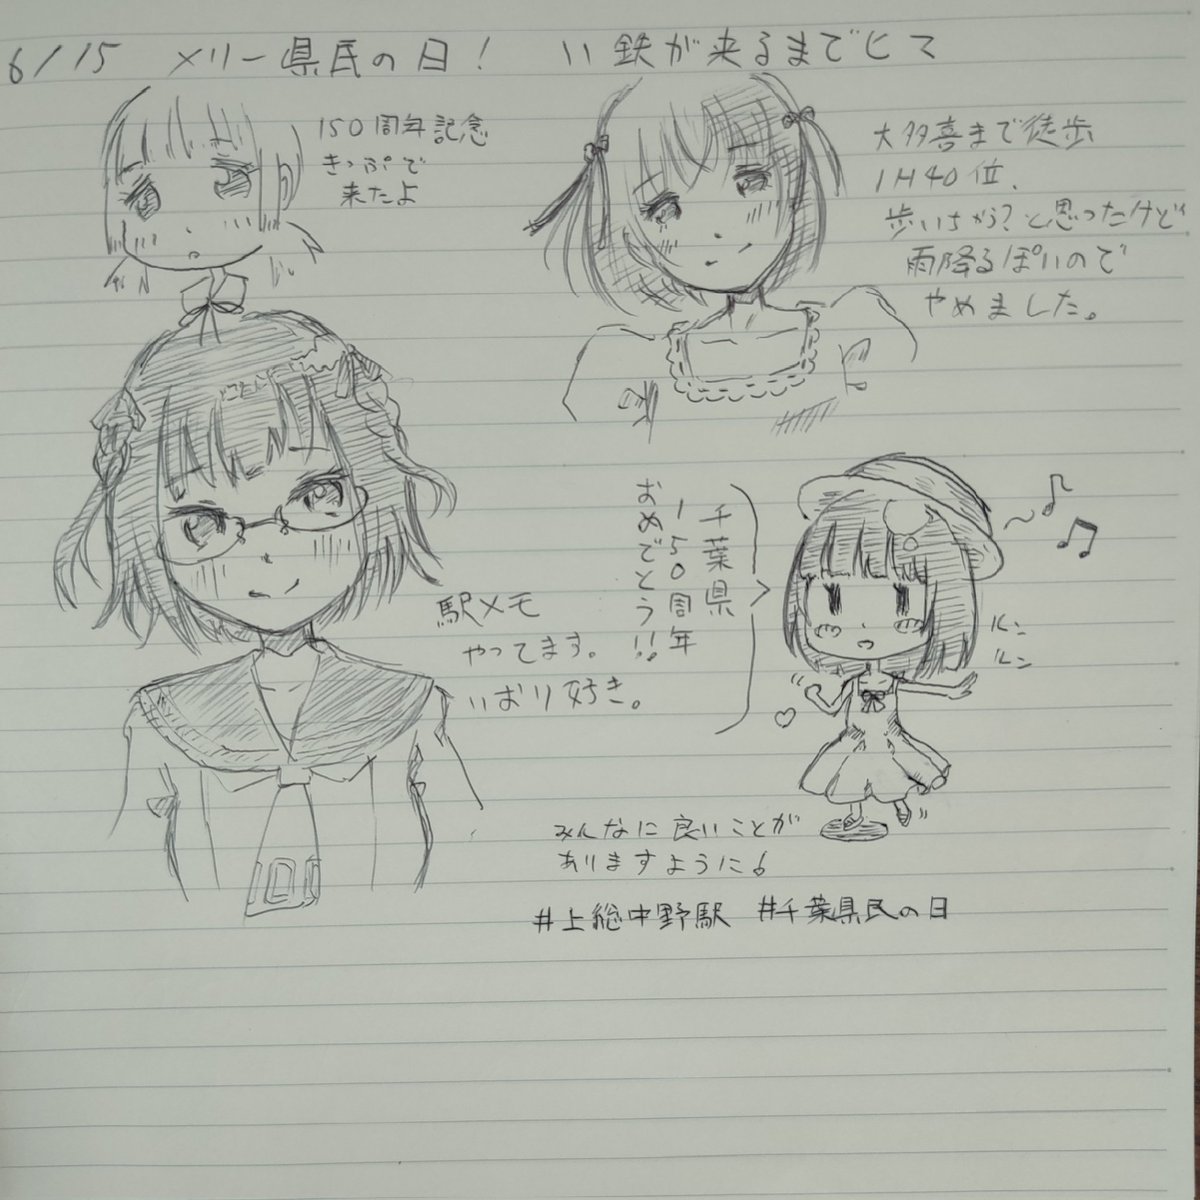 6/15 メリー県民の日! い鉄が来るまでヒマ
150周年記念
きっぷで
来たよ
大多喜まで徒歩
1H40位、
歩いちゃう?と思ったけど
雨降るぽいので
やめました。
千葉県
150周年
おめでとう!!
ルン
ルン
駅メモ
やってます。
いおり好き。
みんなに良いことが
ありますように
#上総中野駅 #千葉県民の日